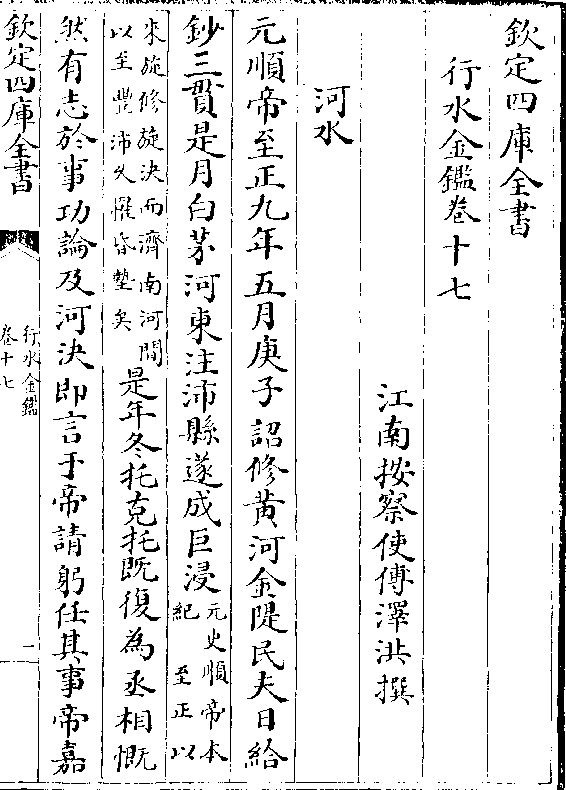 欽定四庫全書
行水金鑑卷十七
江南按察使傅澤洪撰
河水
元順帝至正九年五月庚子詔修黄河金隄民夫日給
鈔三貫是月白茅河東注沛縣遂成巨浸元史順帝本
紀 至正以
來旋修旋決而濟南河間
以至豐沛久罹昏墊矣是年冬托克托既復為丞相慨
然有志於事功論及河決即言于帝請躬任其事帝嘉
欽定四庫全書
行水金鑑
卷十七
一